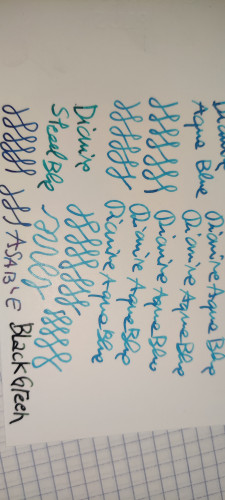 Diamine
Aqua Blue
Diamine Aqua Blue
Diamine Aqua Blue
Diamine Aqua Blue
Diamine Aqua Blue
Diamine Aqua Blue
Diamine
Steel Blue
ASA BLUE
Black GTech